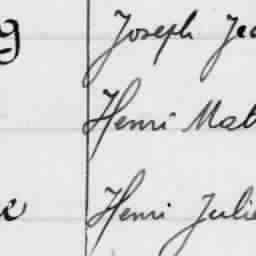 Joseph Jea
Henri Mat
Henri Julie